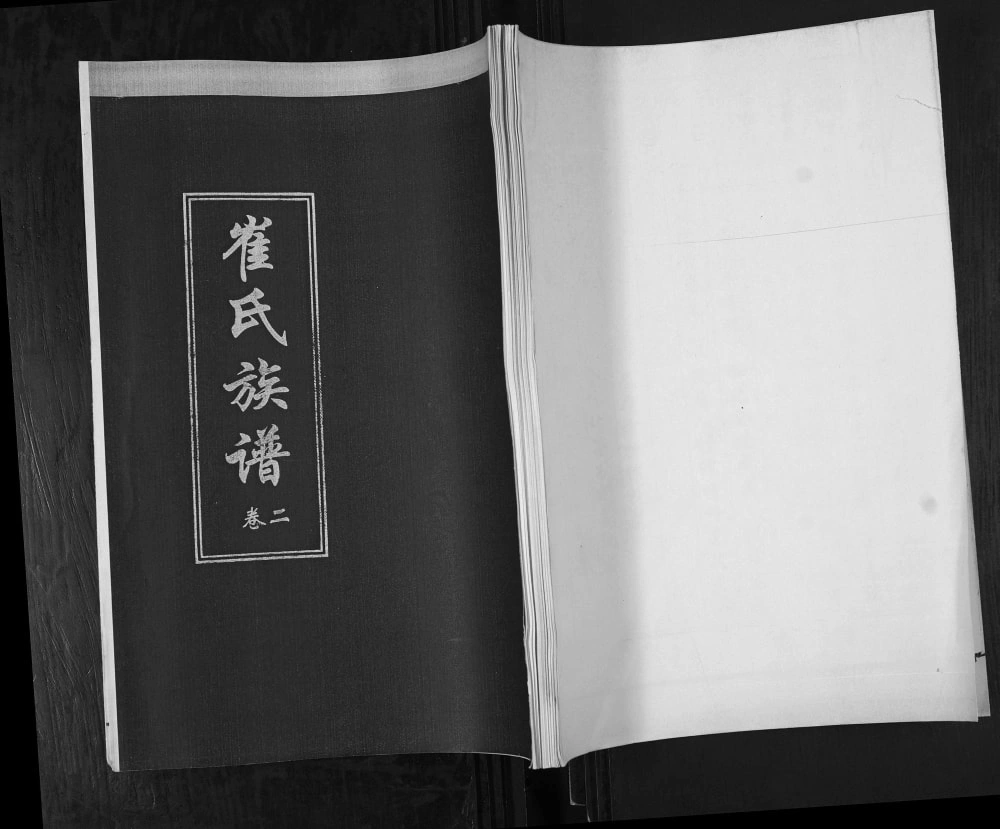 崔氏族谱
卷二